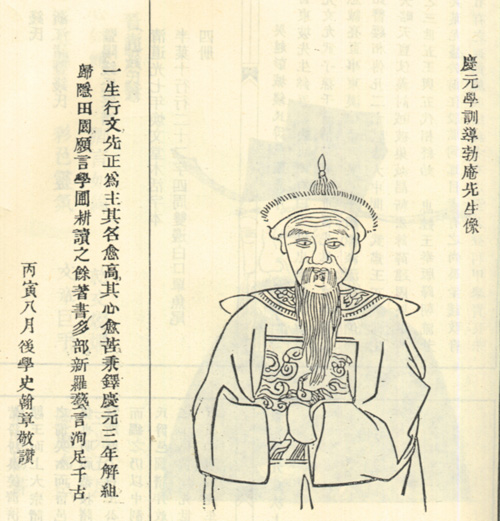 慶元學訓導勃庵先生像
一生行文先正爲主其名愈高其心愈苦秉鐸慶元三年解組
歸隱田園願言學圃耕讀之餘著書多部新羅發言洵足千古
丙寅八月後學史翰章敬讚